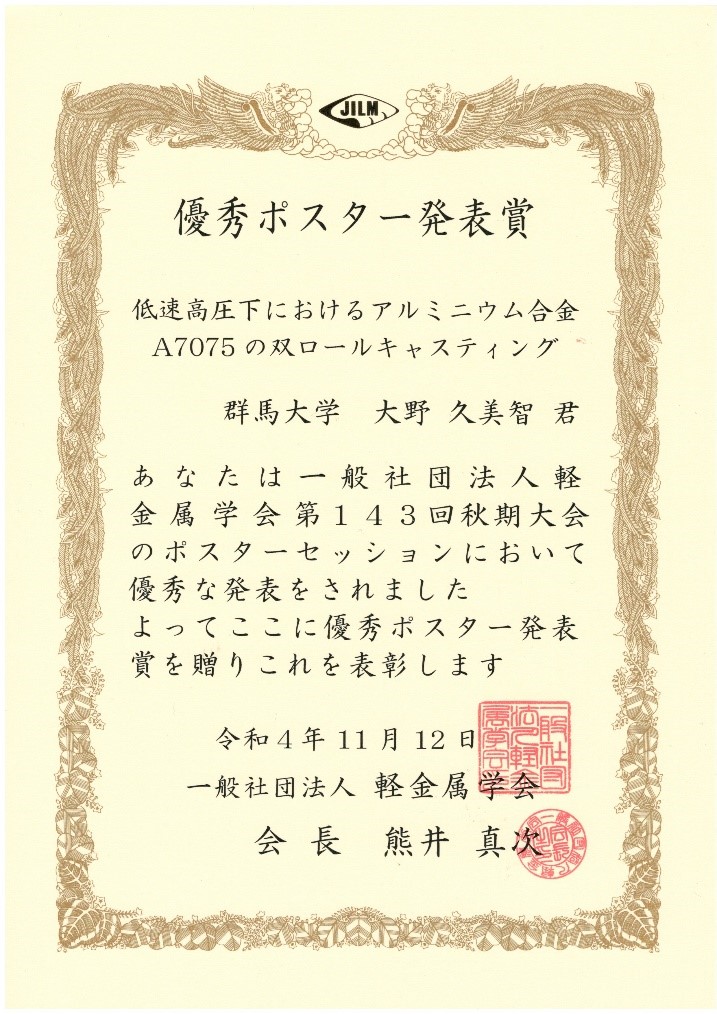 JILM
優秀ポスター発表賞
低速高圧下におけるアルミニウム合金
A7075の双ロールキャスティング
群馬大学 大野 久美智 君
あなたは一般社団法人軽
金属学会第143回秋期大会
のポスターセッションにおいて
優秀な発表をされました
よってここに優秀ポスター発表
賞を贈りこれを表彰します
令和4年11月12日
一般社団法人 軽金属学会
会長 熊井 真次